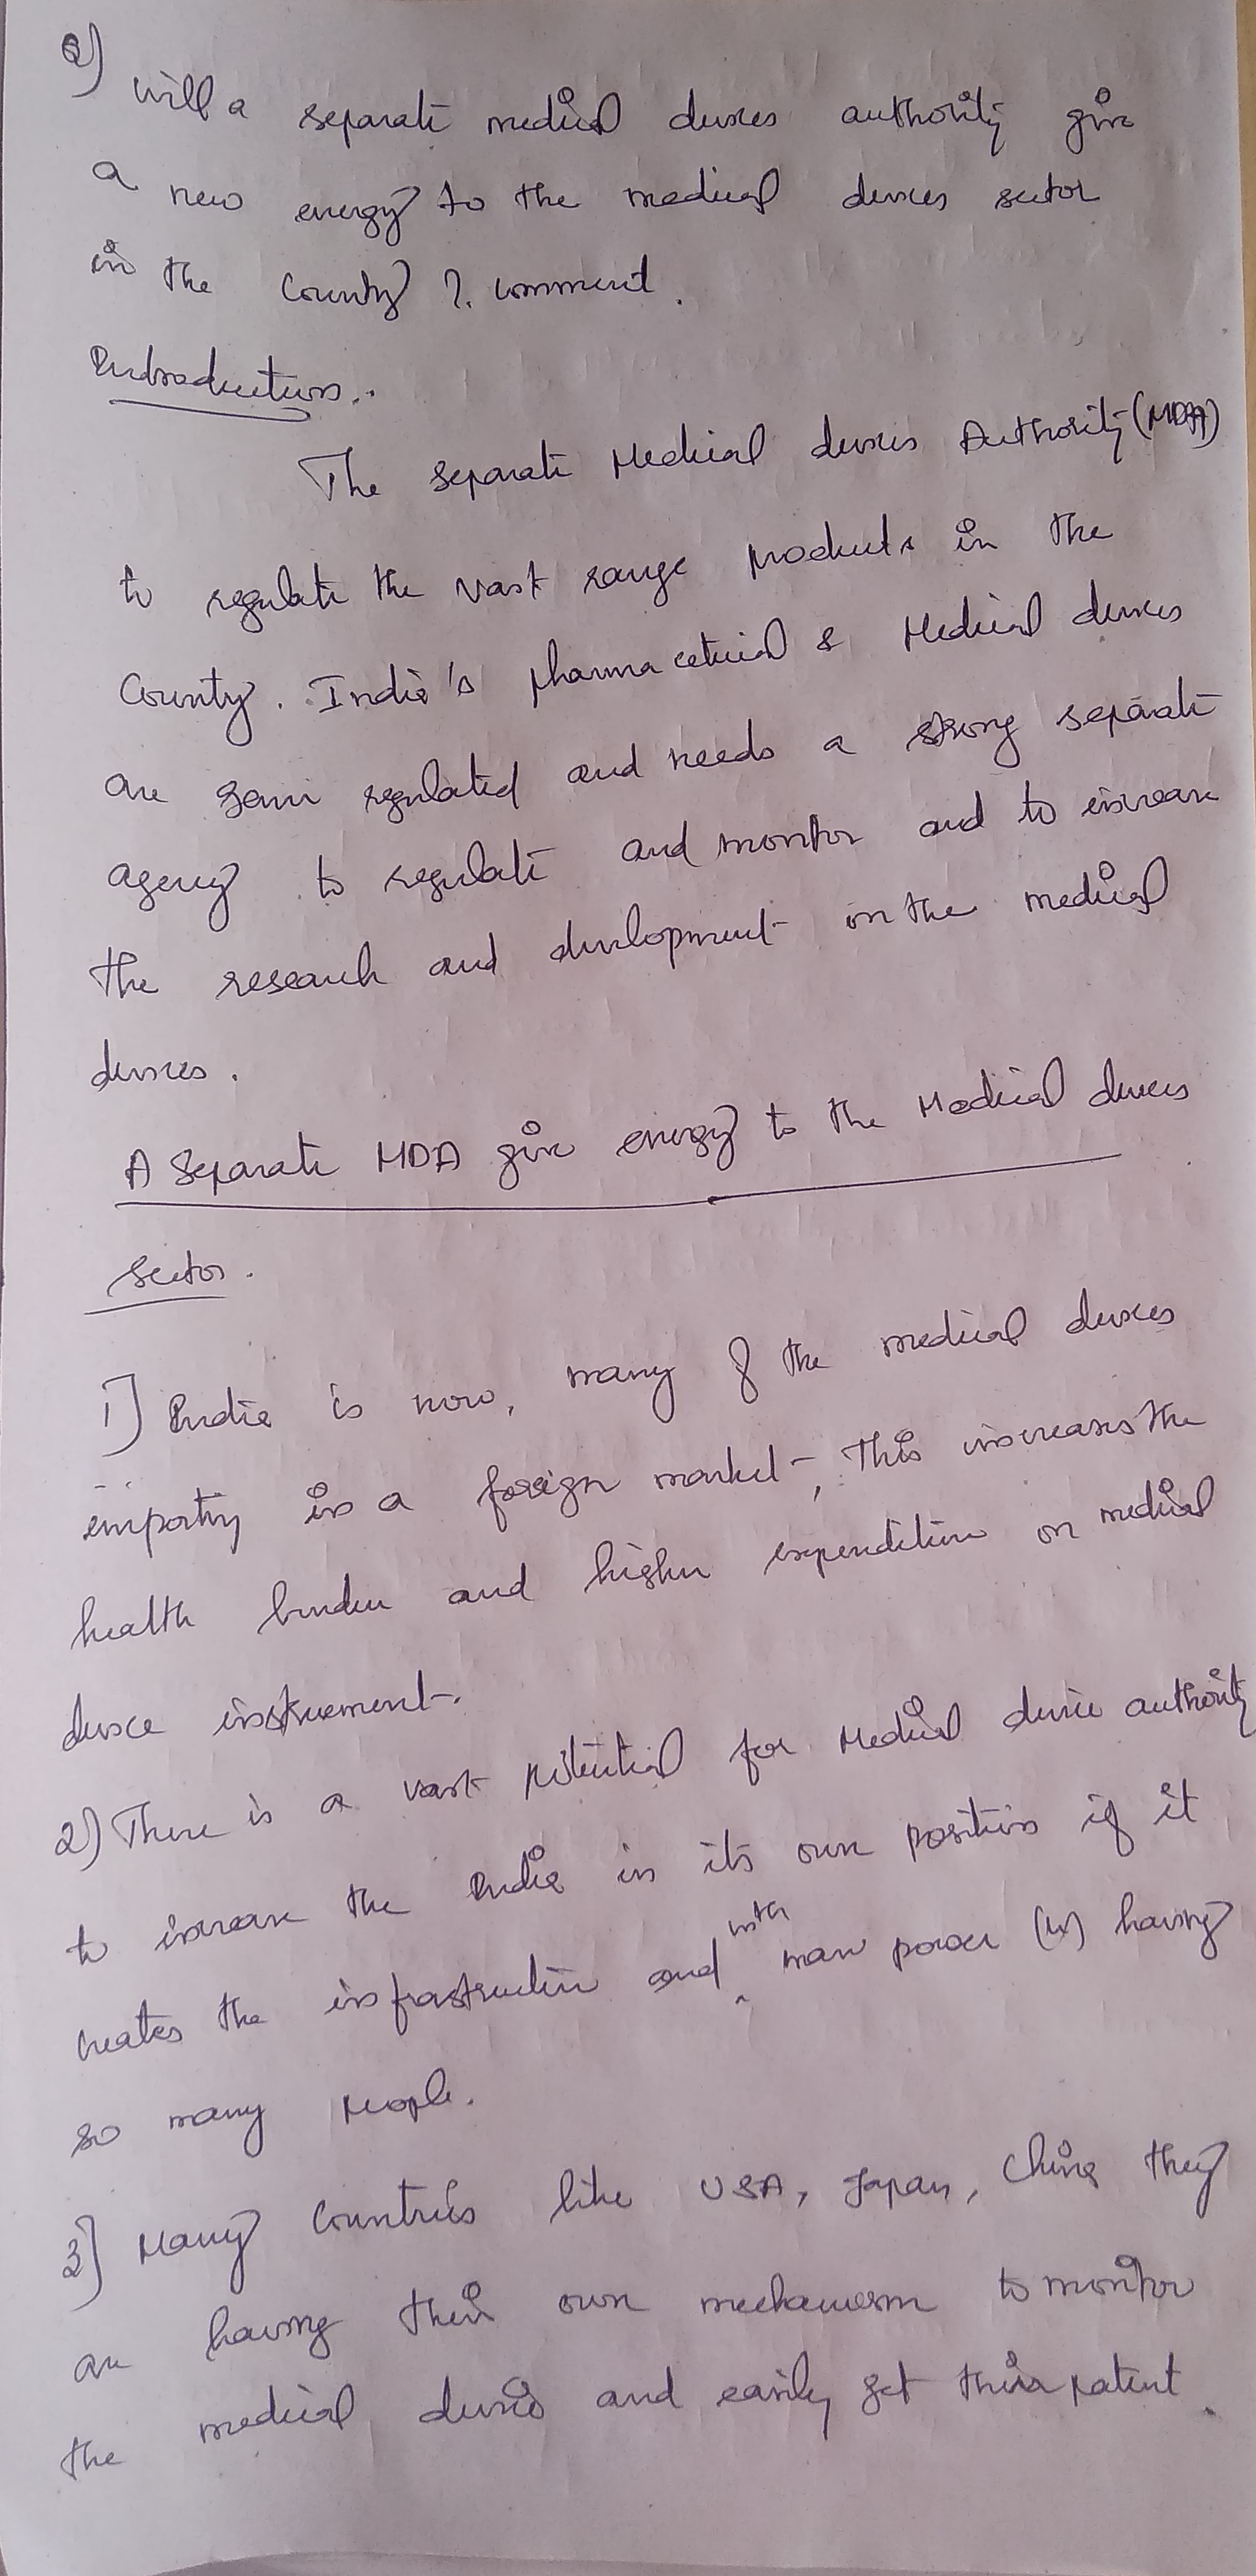 Q) Will a separate medical devices authority give
a new energy to the medical devices sector
in the County ? comment.
Introduction..
The separate Medical devices Authority (MDA)
to regulate the vast range products in the
County. India's pharmaceutical & Medical devices
are semi regulated and needs a strong separate
agency to regulate and monitor and to increase
the research and development in the medical
devices.
A Separate MDA give energy to the Medical devices
Sector.
1) India is now, many of the medical devices
importing in a foreign market, This increases the
health burden and higher expenditure on medical
device instruement.
2) There is a vast potential for Medical device authority
to increase the India in its own position if it
creates the infrastructure and with man power having
so many people.
3) Many Countries like USA, Japan, China they
are having their own mechanism to monitor
the medical devices and easily get their patent.